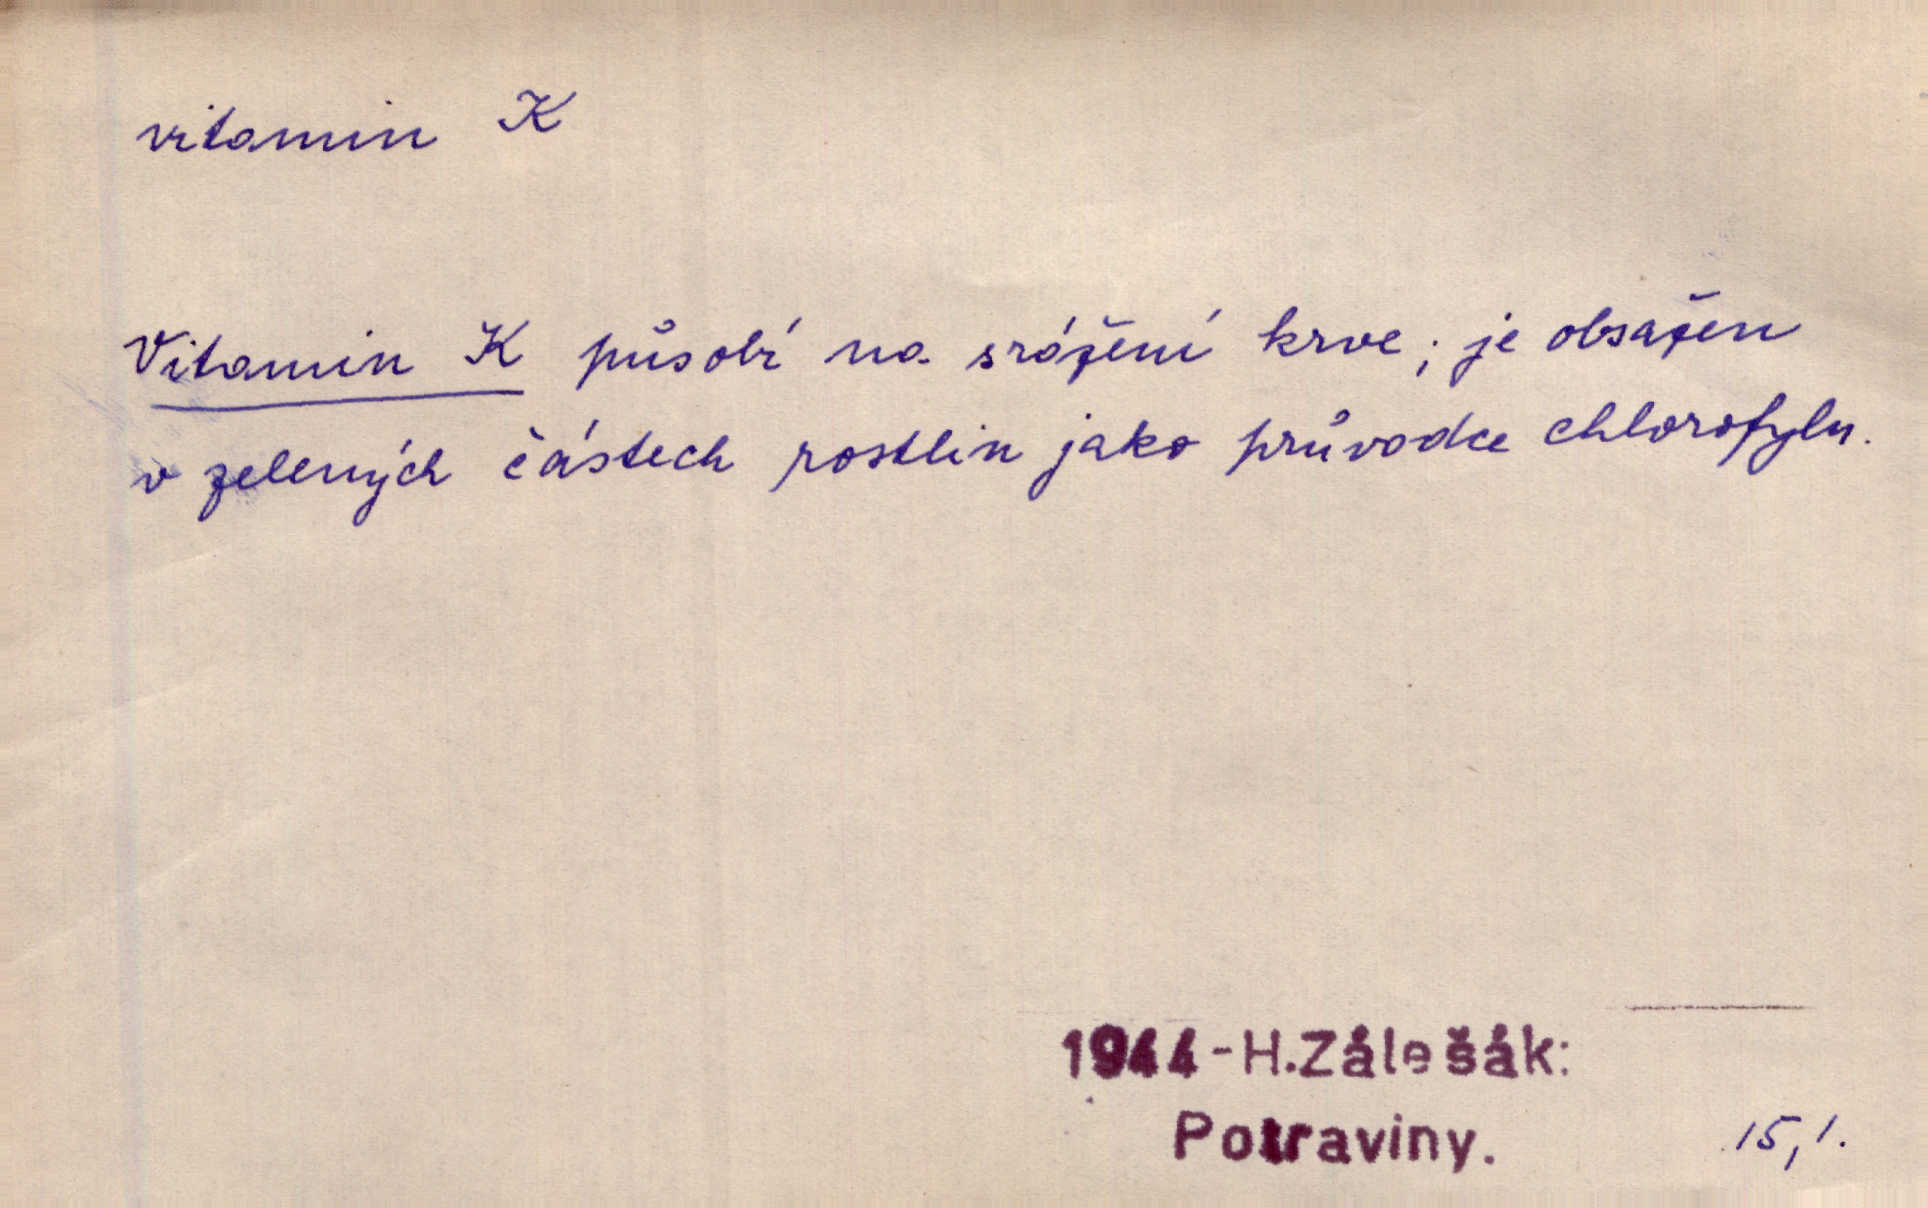 vitamin K
Vitamin K působí na srážení krve; je obsažen
v zelených částech rostlin jako průvodce chlorofylu.
1944-H.Zálešák:
Potraviny.
15,1.